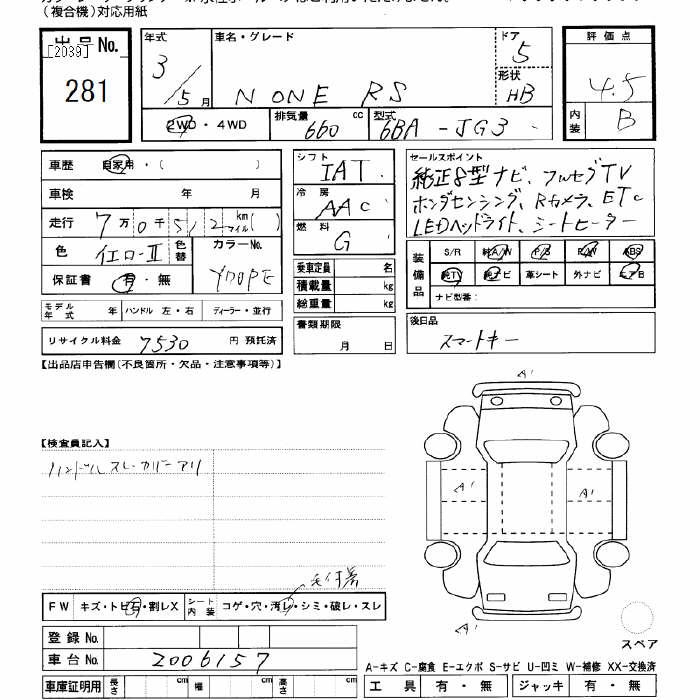 (複合機)対応用紙
出品No.
[2039]
281
年式
3/5月
車名・グレード
N ONE RS
ドア
5
形状
HB
2WD・4WD
排気量
660 cc
型式
6BA-JG3
評価点
4.5
内装
B
車歴 自家用・( )
車検 年 月
走行 7万0千512 km マイル( )
色 イエローII 色替
カラーNo.
Y70PE
保証書 有・無
モデル年式 年 ハンドル 左・右 ディーラー・並行
リサイクル料金 7530 円 預託済
シフト
IAT
冷房
AAC
燃料
G
乗車定員 名
積載量 kg
総重量 kg
書類期限
月 日
セールスポイント
純正8型ナビ、フルセグTV
ホンダセンシング、Rカメラ、ETC
LEDヘッドライト、シートヒーター
装備品
S/R 純A/W P/S P/W ABS
純TV 純ナビ 革シート 外ナビ エアB
ナビ型番:
後日品
スマートキー
【出品店申告欄(不良箇所・欠品・注意事項等)】
【検査員記入】
ハンドルスレ・カバーアリ
A1
A1
A1
A1
スペア
FW キズ・トビ石・割レX
シート内装 コゲ・穴・汚レ・シミ・破レ・スレ
登録No.
車台No. 2006157
車庫証明用 長さ cm 幅 cm 高さ cm
A-キズ C-腐食 E-エクボ S-サビ U-凹ミ W-補修 XX-交換済
工具 有・無 ジャッキ 有・無